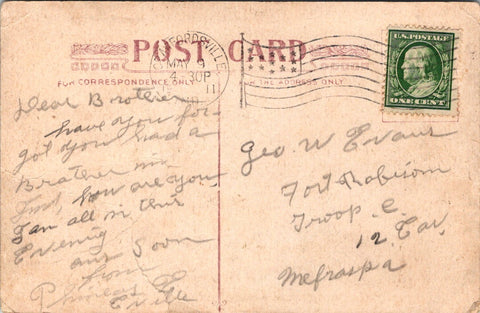 POST CARD
FOR CORRESPONDENCE ONLY
THE ADDRESS ONLY
FORDSVILLE
MAY 9
4-30P
11
U.S. POSTAGE
ONE CENT
Dear Broterer
have you for
got you had a
Braterer in
how are you
I am all in this
Evening
ans Soon
from
Eville
Geo. W Evans
Fort Robison
Troop. C.
12 Cav,
Mefraspa